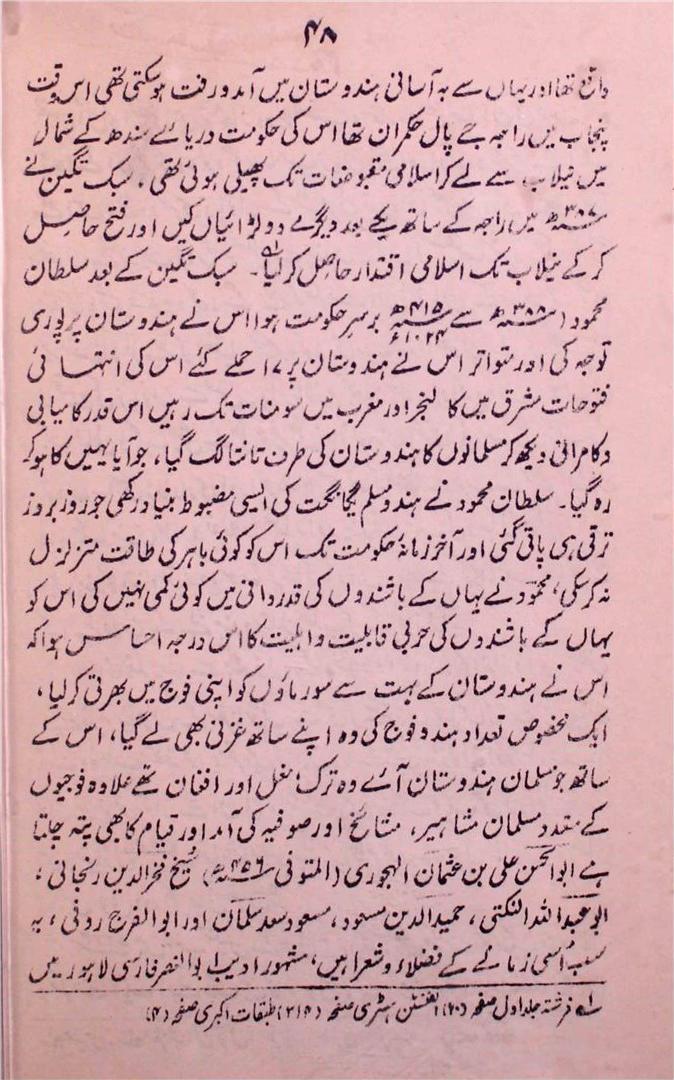 ۴۸
واقع تھا اور یہاں سے بہ آسانی ہندوستان میں آمدورفت ہوسکتی تھی اس وقت
پنجاب میں راجہ جے پال حکمران تھا اس کی حکومت دریائے سندھ کے شمال
میں نیلاب سے لے کر اسلامی مقبوضات تک پھیلی ہوئی تھی۔ سبک تگین نے
۳۸۷ھ میں راجہ کے ساتھ یکے بعد دیگرے دو لڑائیاں کیں اور فتح حاصل
کر کے نیلاب تک اسلامی اقتدار حاصل کرلیا۱؎۔ سبک تگین کے بعد سلطان
محمود (۳۸۸ھ سے ۴۱۵ھ ۱۰۲۴ء برسر حکومت ہوا اس نے ہندوستان پر پوری
توجہ کی اور متواتر اس نے ہندوستان پر ۱۷ حملے کئے اس کی انتہائی
فتوحات مشرق میں کالنجر اور مغرب میں سومنات تک رہیں اس قدر کامیابی
وکامرانی دیکھ کر مسلمانوں کا ہندوستان کی طرف تانتا لگ گیا، جو آیا یہیں کا ہوکر
رہ گیا۔ سلطان محمود نے ہندو مسلم یکجا نگت کی ایسی مضبوط بنیاد رکھی جو روز بروز
ترقی ہی پاتی گئی اور آخر زمانۂ حکومت تک اس کو کوئی باہر کی طاقت متزلزل
نہ کرسکی، محمود نے یہاں کے باشندوں کی قدردانی میں کوئی کمی نہیں کی اس کو
یہاں کے باشندوں کی حربی قابلیت واہلیت کا اس درجہ احساس ہوا کہ
اس نے ہندوستان کے بہت سے سورماؤں کو اپنی فوج میں بھرتی کرلیا،
ایک مخصوص تعداد ہندو فوج کی وہ اپنے ساتھ غزنی بھی لے گیا، اس کے
ساتھ جو مسلمان ہندوستان آئے وہ ترک، مغل اور افغان تھے علاوہ فوجیوں
کے متعدد مسلمان مشاہیر، مشائخ اور صوفیہ کی آمد اور قیام کا بھی پتہ چلتا
ہے ابوالحسن علی بن عثمان الہجوری (المتوفی ۴۵۶ھ) شیخ فخرالدین زنجانی،
ابوعبداللہ النکتی، حمیدالدین مسعود، مسعود سعد سلمان اور ابوالفرج رونی، یہ
سب اُسی زمانے کے فضلاء وشعرا ہیں، مشہور ادیب ابوالنصر فارسی لاہور میں
۱؎ فرشتہ جلد اول صفحہ (۲۰) الفنسٹن ہسٹری صفحہ (۳۱۴) طبقات اکبری صفحہ (۴)